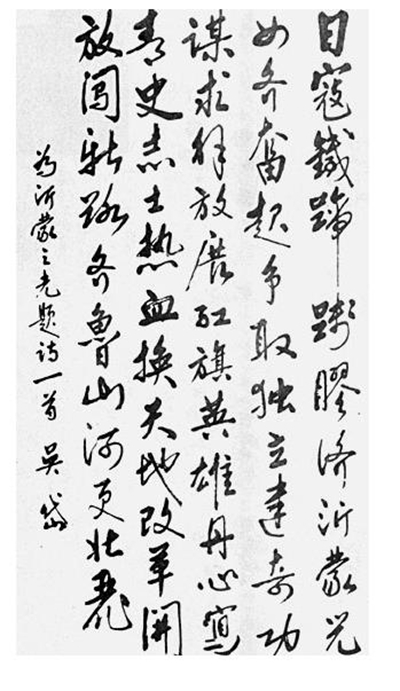 日寇鐵蹄踐膠济沂蒙兒
女齐奮起争取独立建奇功
谋求解放展红旗英雄丹心寫
青史志士热血换天地改革開
放闯新路齐魯山河更壮麗
为沂蒙之光题诗一首 吴岱